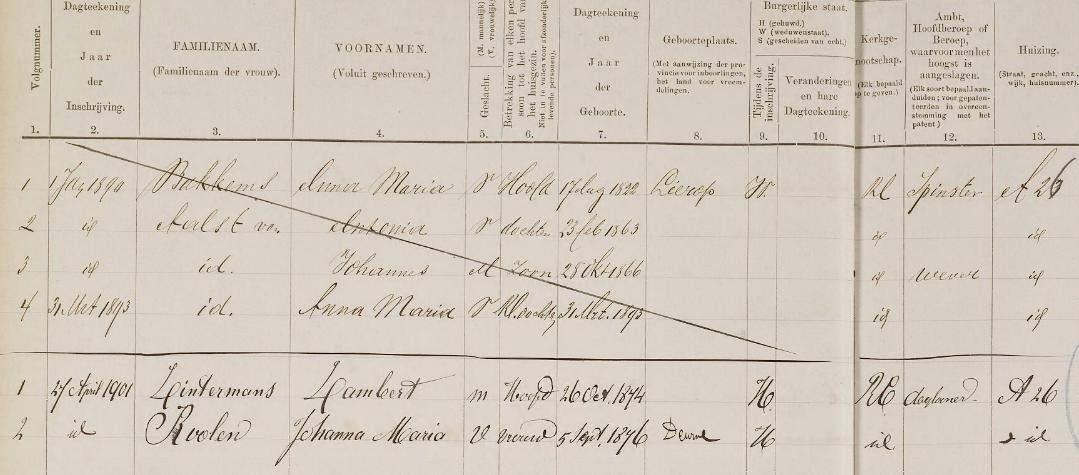 Volgnummer.
Dagteekening en Jaar der Inschrijving.
FAMILIENAAM. (Familienaam der vrouw).
VOORNAMEN. (Voluit geschreven.)
Geslacht. (M. mannelijk) (V. vrouwelijk)
Betrekking van elken persoon tot het hoofd van het huisgezin.
Dagteekening en Jaar der Geboorte.
Geboorteplaats. (Met aanwijzing der provincie voor inboorlingen, het land voor vreemdelingen.
Burgerlijke staat.
H (gehuwd.)
W (weduwenstaat).
S (gescheiden van echt.)
Tijdens de inschrijving.
Veranderingen en hare Dagteekening.
Kerkgenootschap. (Elk bepaald op te geven.)
Ambt, Hoofdberoep of Beroep, waarvoor men het hoogst is aangeslagen. (Elk soort bepaald aanduiden; voor gepatenteerden in overeenstemming met het patent)
Huizing. (Straat, gracht, enz., wijk, huisnummer).
1. 2. 3. 4. 5. 6. 7. 8. 9. 10. 11. 12. 13.
1 1 Jan 1890 Bukkems Anna Maria V Hoofd 17 Aug 1822 Lierop W. RK Spinster A 26
2 id Aalst van Antonia V dochter 23 feb 1863 id id
3 id id. Johannes M Zoon 28 Okt 1866 id wever id
4 31 Mrt 1893 id. Anna Maria V Kl. dochtr 31 Mrt. 1893 id id
1 27 April 1901 Lintermans Lambert m Hoofd 26 Oct. 1874 H. RK daglooner A 26
2 id Roolen Johanna Maria V vrouw 5 Sept. 1876 Deurne H id id